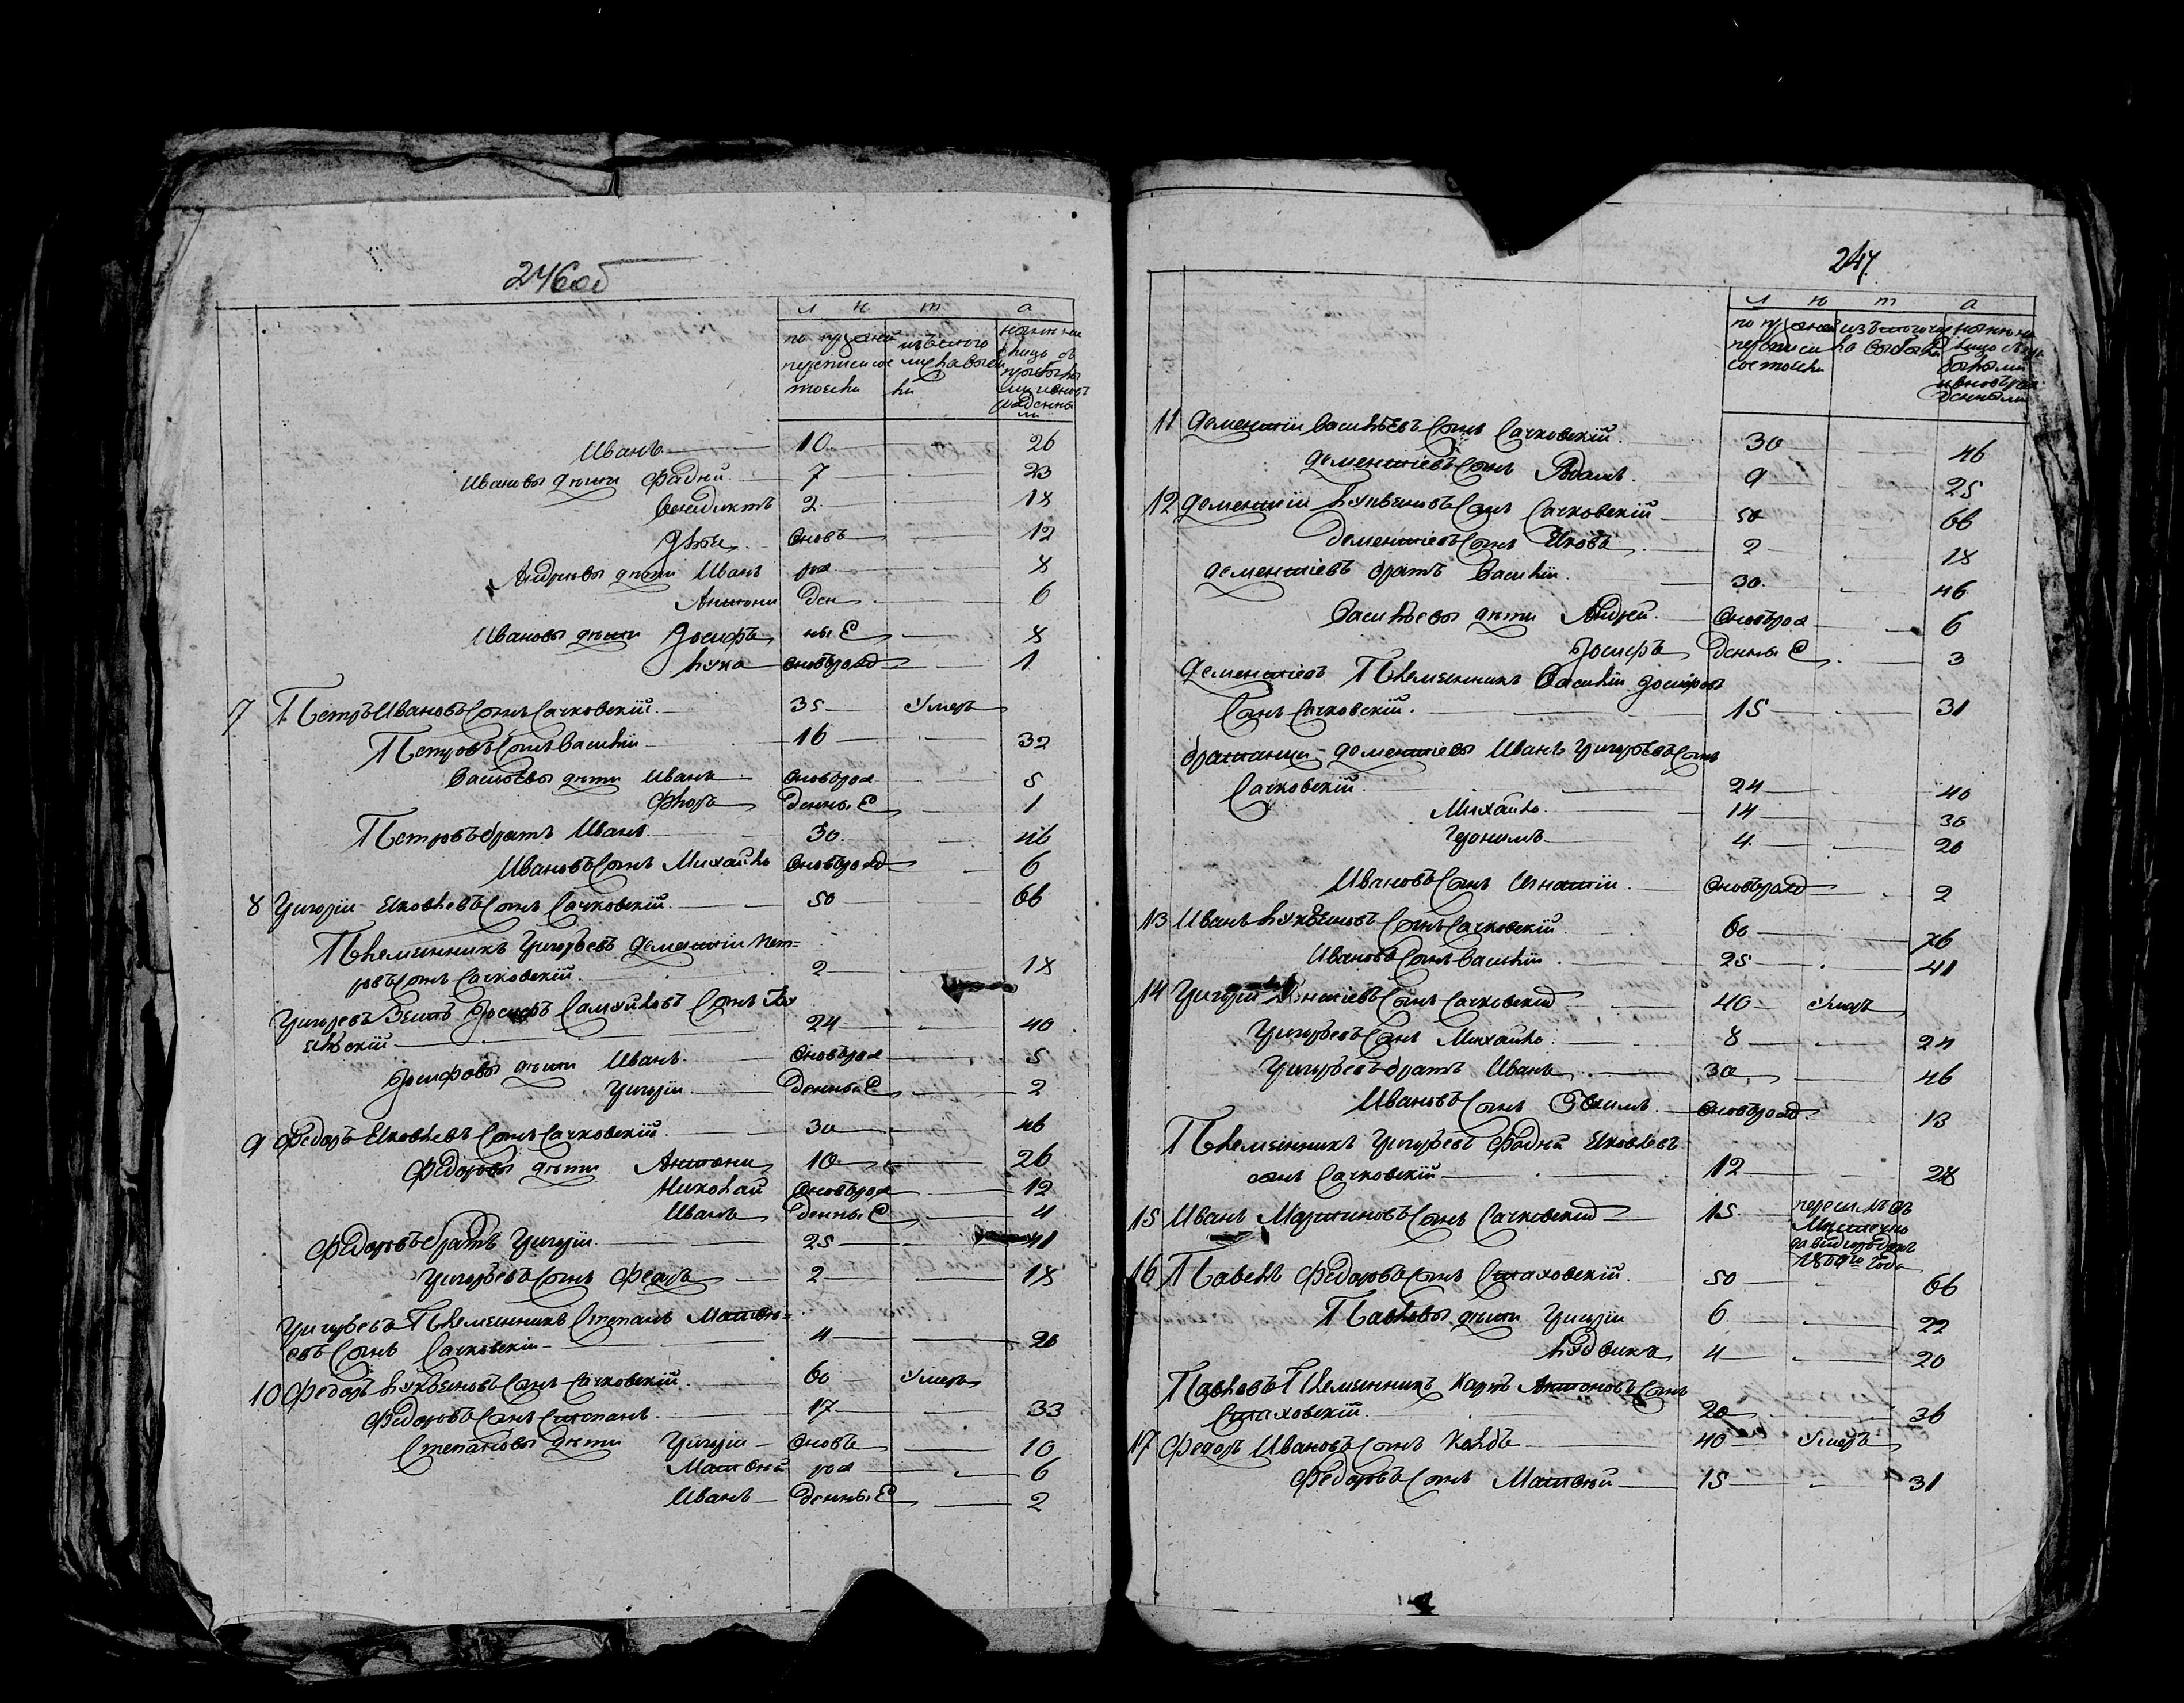 246об
л ѣ т а
по прежней
переписи сос
тоели
изъ того
числа выбы
ли
нынѣ на
лицо съ
прибылы
ми и вновь
рожденны
ми
Иванъ 10 26
Ивановы дѣти Фадѣй 7 23
Венедиктъ 2 18
вновь 12
Андреевы дѣти Иванъ рож 8
Антони ден 6
Ивановы дѣти Іосифъ ные 8
Лука вновьрожд 1
7 Петръ Ивановъ Сынъ Сачковскій 35 Умеръ
Петровъ Сынъ Василій 16 32
Васильевы дѣти Иванъ вноврож 5
Флоръ денные 1
Петровъ братъ Иванъ 30 46
Ивановъ Сынъ Михайло вноврожд 6
8 Григорій Яковлевъ Сынъ Сачковскій 50 66
Племянникъ Григорьевъ Дементій Пет=
ровъ Сынъ Сачковскій 2 18
Григорьевъ Зять Іосифъ Самуйловъ Сынъ
24 40
Іосифовы дѣти Иванъ вноврож 5
Григорій денные 2
9 Федоръ Яковлевъ Сынъ Сачковскій 30 46
Федоровы дѣти Антони 10 26
Николай вноврож 12
Иванъ денные 4
Федоровъ братъ Григорій 25 41
Григорьевъ Сынъ Федоръ 2 18
Григорьевъ Племянникъ Степанъ Матвѣ=
евъ Сынъ Сачковскій 4 20
10 Федоръ Лукьяновъ Сынъ Сачковскій 60 Умеръ
Федоровъ Сынъ Степанъ 17 33
Степановы дѣти Григорій вновь 10
Матвѣй рож 6
Иванъ денные 2
247
л ѣ т а
по прежней
переписи
состоели
изъ того чис
ла выбыли
нынѣ на
лицо съ при
былыми
и вноврож
денными
11 Дементій Васильевъ Сынъ Сачковскій 30 46
Дементіевъ Сынъ Адамъ 9 25
12 Дементій Лукьяновъ Сынъ Сачковскій 50 66
Дементіевъ Сынъ Яковъ 2 18
Дементіевъ братъ Василій 30 46
Васильевы дѣти Андрей вноврож 6
Іосифъ денные 3
Дементіевъ Племянникъ Василій Іосифовъ
Сынъ Сачковскій 15 31
братанцы Дементіевы Иванъ Григорьевъ Сынъ
Сачковскій 24 40
Михайло 14 30
Геронимъ 4 20
Ивановъ Сынъ Игнатій вноврожд 2
13 Иванъ Лукьяновъ Сынъ Сачковскій 60 76
Ивановъ Сынъ Василій 25 41
14 Григорій Сынъ Сачковскій 40 Умеръ
Григорьевъ Сынъ Михайло 8 24
Григорьевъ братъ Иванъ 30 46
Ивановъ Сынъ вноврожд 13
Племянникъ Григорьевъ Фадѣй Яковлевъ
сынъ Сачковскій 12 28
15 Иванъ Мартиновъ Сынъ Сачковскій 15
Местечко
Давидгородок
года
16 Павелъ Федоровъ Сынъ Стаховскій 50 66
Павловы дѣти Григорій 6 22
Людвикъ 4 20
Павловъ Племянникъ Карпъ Антоновъ Сынъ
Стаховскій 20 36
17 Федоръ Ивановъ Сынъ Колбъ 40 Умеръ
Федоровъ Сынъ Матвѣй 15 31